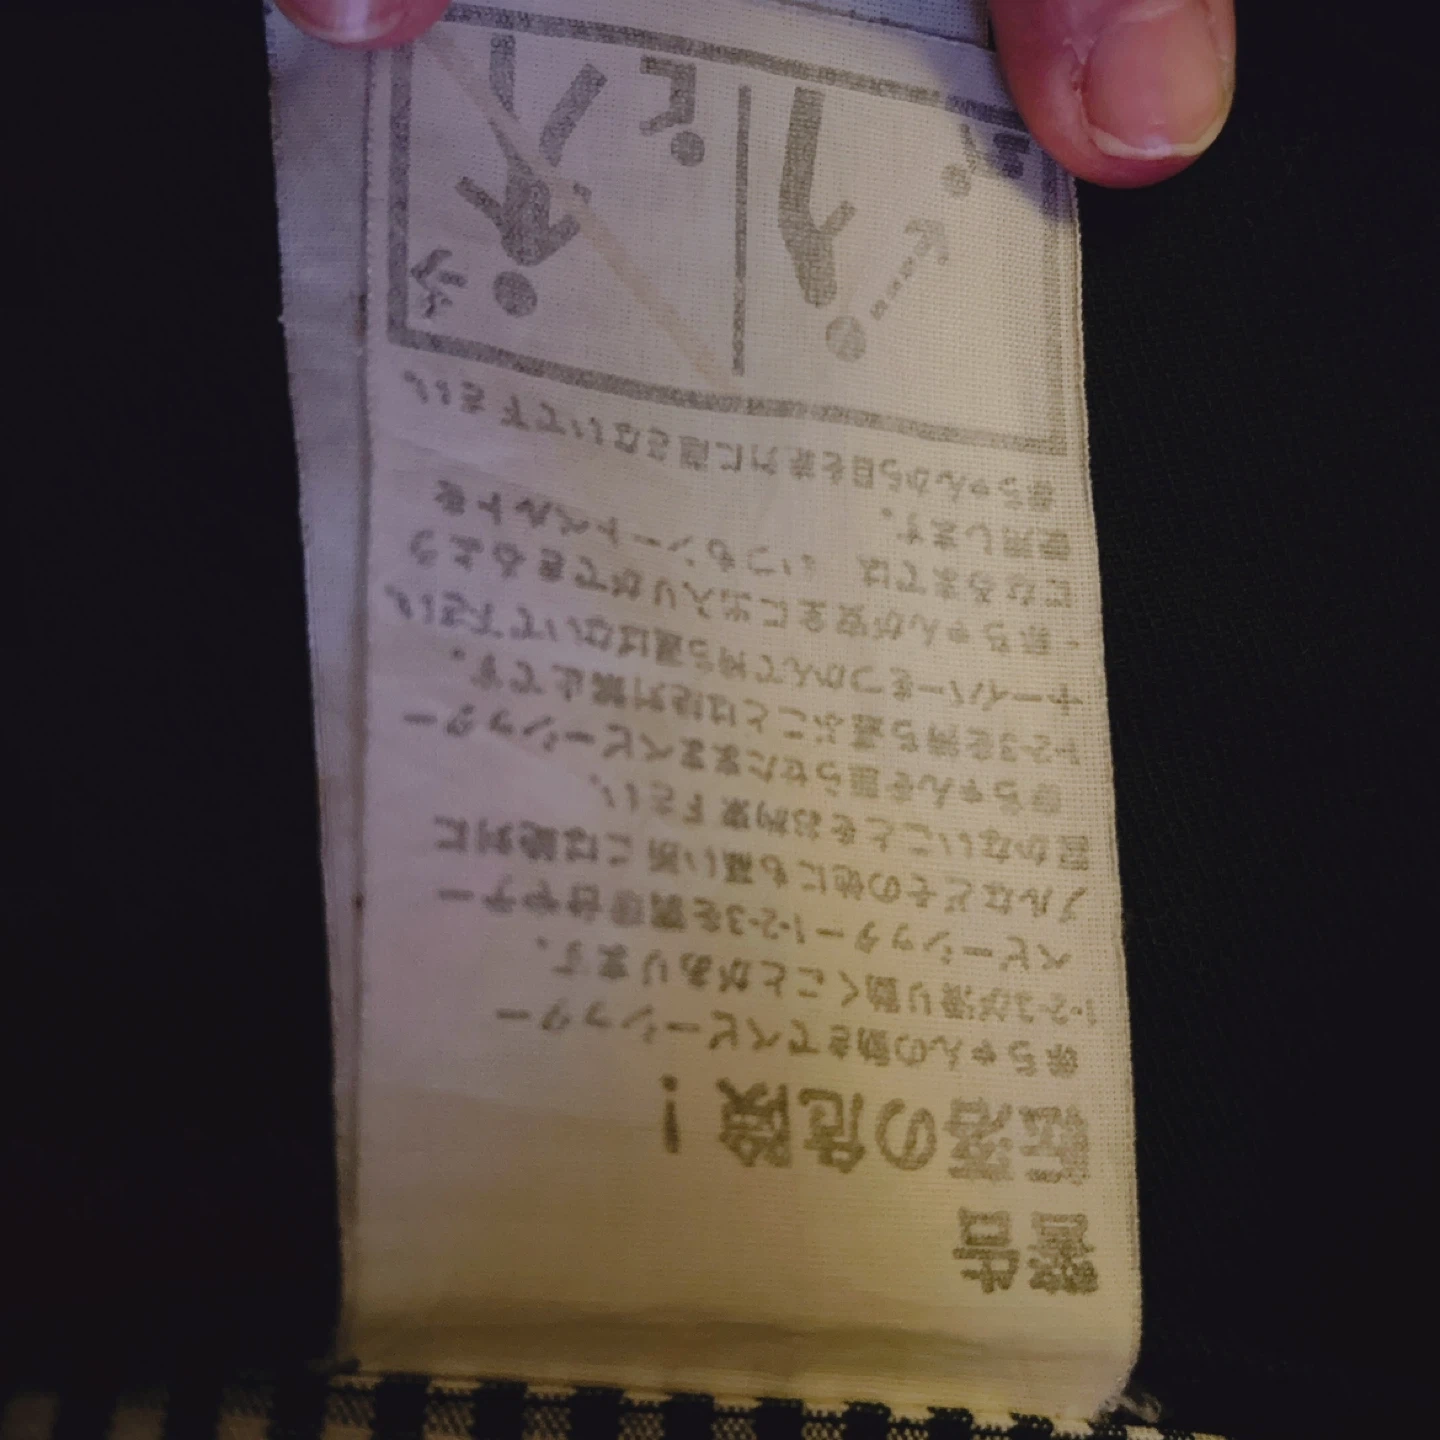 警告
転落の危険！
赤ちゃんの動きでベビーシッター
1-2-3が滑り動くことがあります。
ベビーシッター1-2-3を調理台やテー
ブルなどその他にも高い所には絶対に
置かないことをお約束下さい。
赤ちゃんを座らせたままベビーシッター
1-2-3を持ち運ぶことは絶対禁止です。
ナーイバーをつかんで持ち運ばないで下さい。
・赤ちゃんが安全に出入りができるよう
になるまでは いつもシートベルトを
使用します。
赤ちゃんから目を絶対に離らないで下さい。